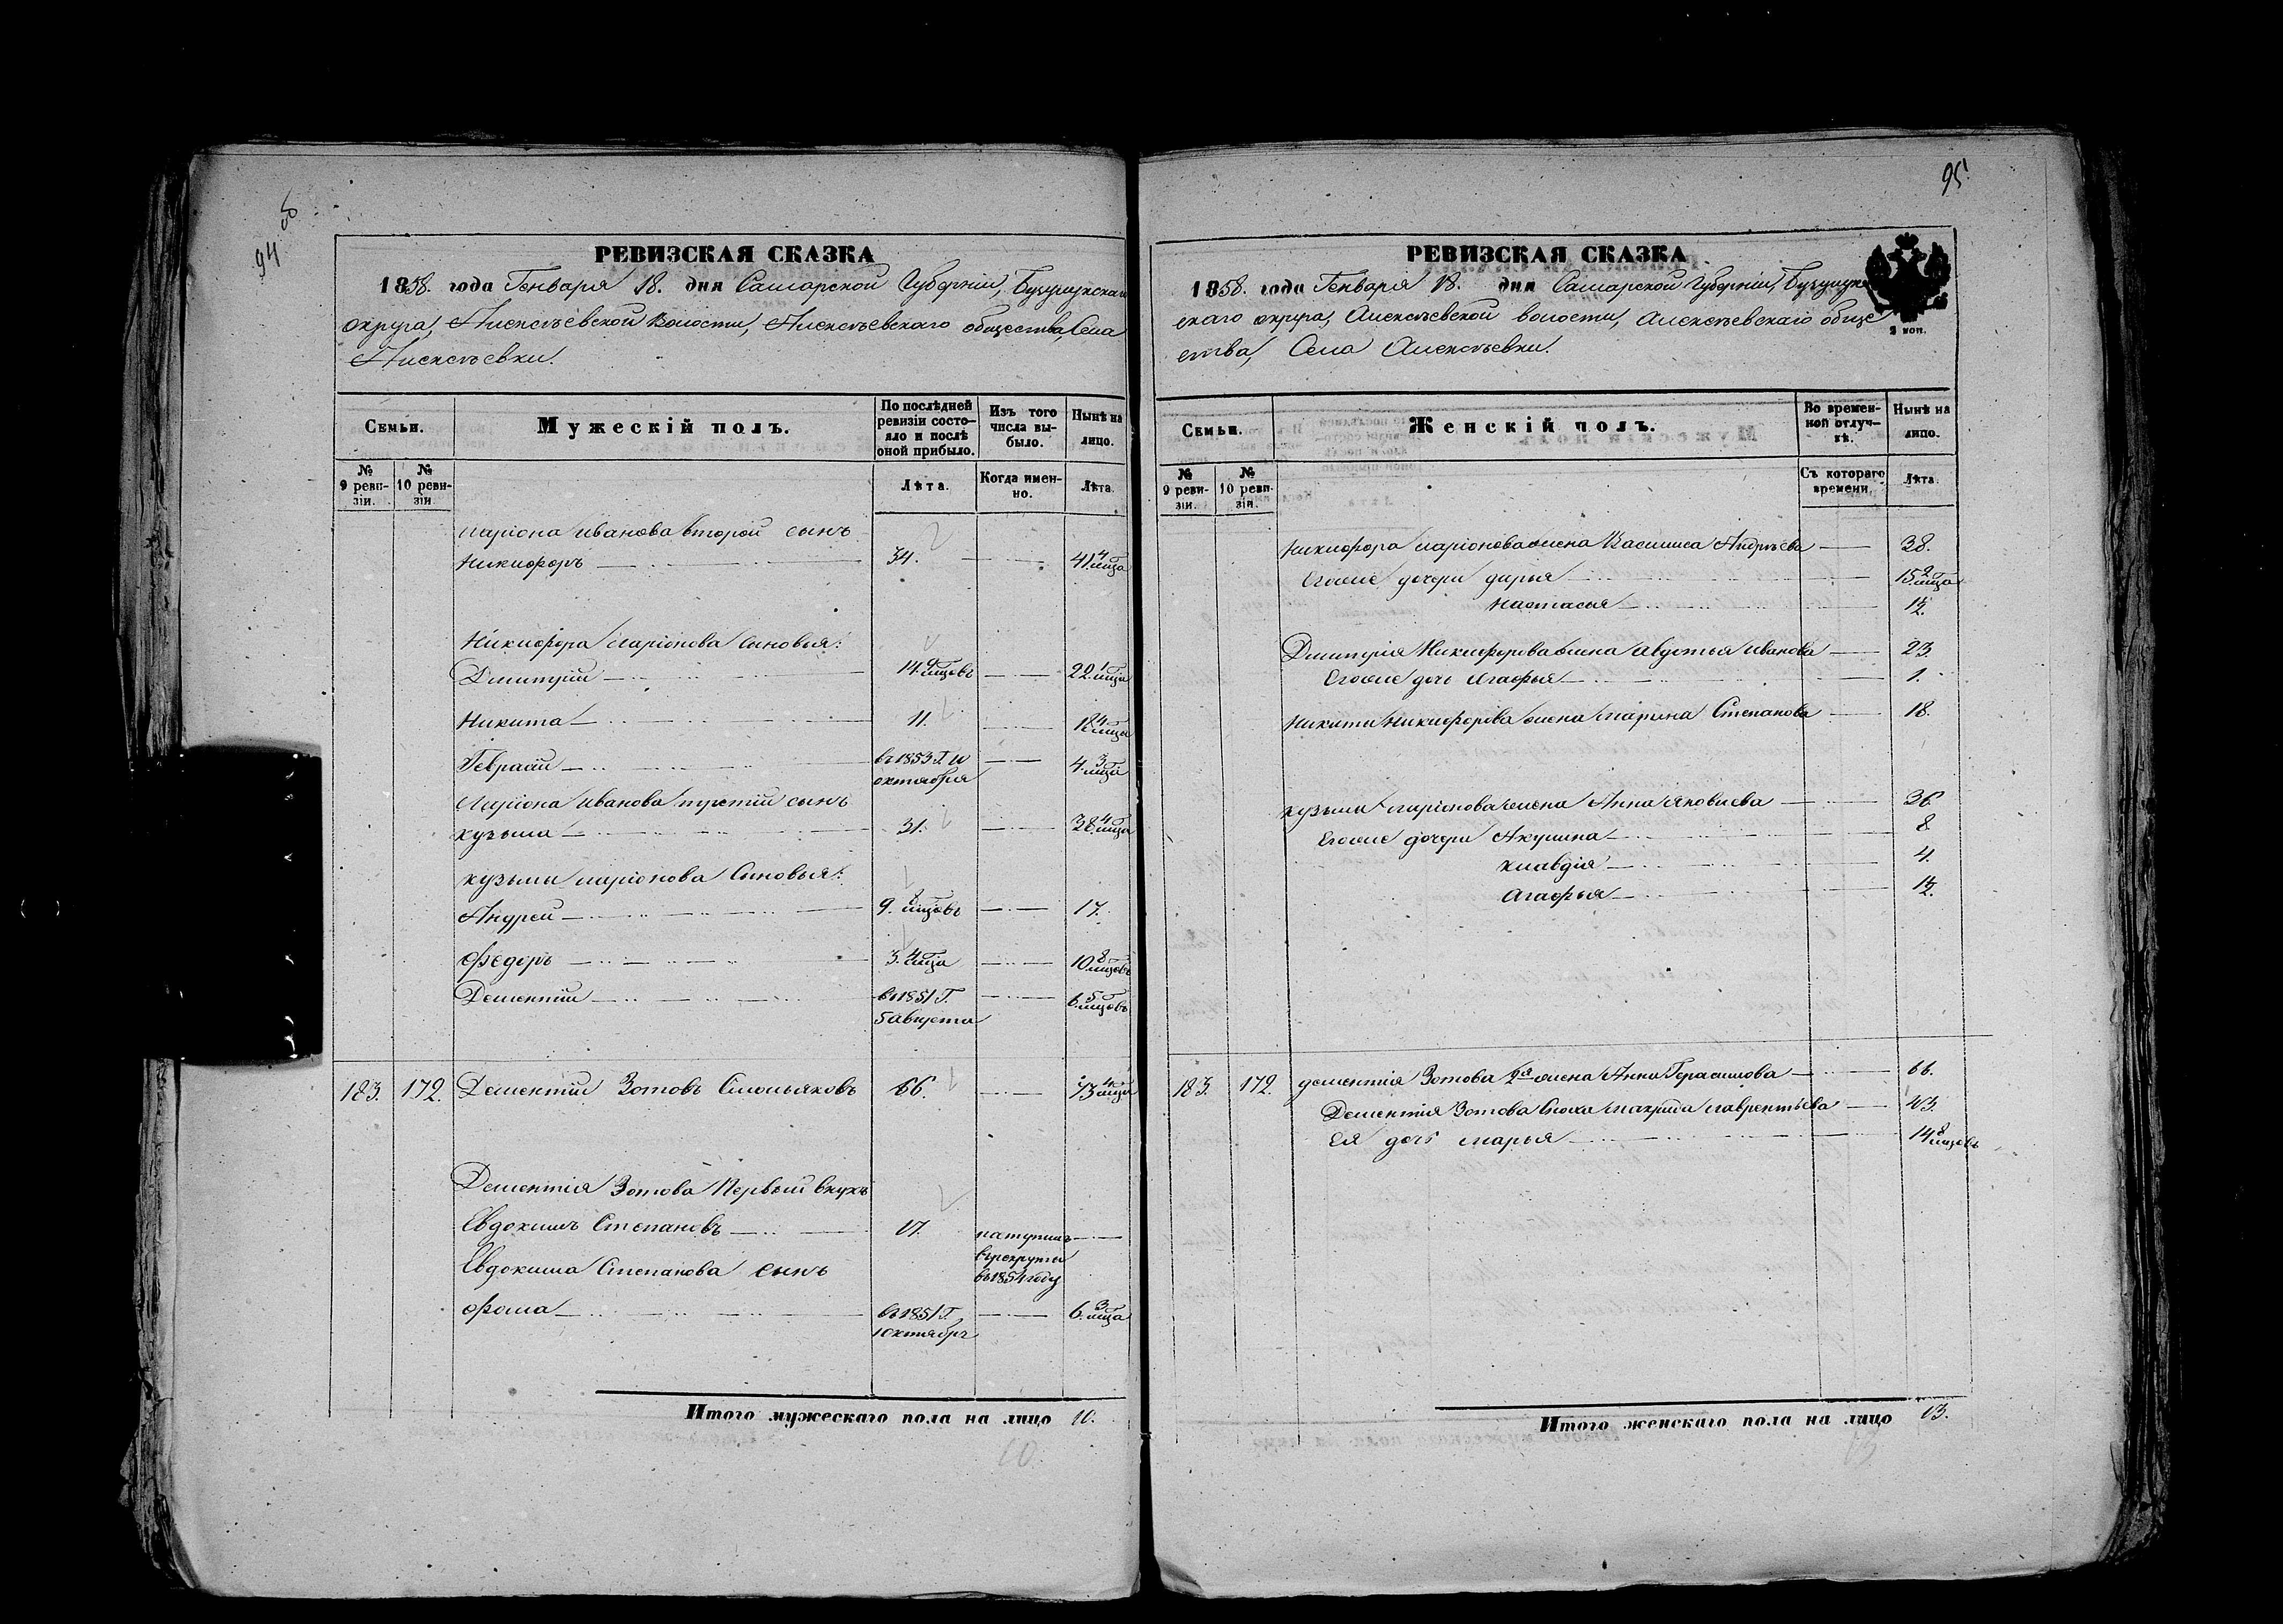 94 об
РЕВИЗСКАЯ СКАЗКА
1858. года Генваря 18. дня Самарской Губерніи, Бузулукскаго
округа, Алексѣевской Волости, Алексѣевскаго общества, Села
Алексѣевки.
Семьи.
Мужескій полъ.
По послѣдней ревизіи состояло и послѣ оной прибыло.
Изъ того числа выбыло.
Нынѣ на лицо.
№ 9 ревизіи.
№ 10 ревизіи
Лѣта.
Когда именно.
Лѣта.
Ларіона Иванова второй сынъ
Никифоръ 34. 41. 4 мца
Никифора Ларіонова сыновья:
Дмитрій 14. 9 мцовъ 22. 1 мца
Никита 11. 18 4 мца
Гевраcій въ 1853 Г. и 4. 3 мца
октября
Ларіона Иванова третій сынъ
Кузьма 31. 38. 4 мца
Кузьмы Ларіонова Сыновья:
Андрей 9. мцовъ 17.
Федоръ 3. 4 мца 10. 8 мцовъ
Дементій въ 1851 Г. 6. 5 мцовъ
5 августа
183. 172. Дементій Зотовъ Смольяковъ 66. 73 4 мца
Дементія Зотова Первый внукъ
Евдокимъ Степановъ 17.
въ рекруты
Евдокима Степанова сынъ въ 1854 году
Фома въ 1851 Г. 6. 3 мца
1 октябрь
Итого мужескаго пола на лицо 10.
10.
95
РЕВИЗСКАЯ СКАЗКА
1858. года Генваря 18. дня Самарской Губерніи, Бузулук
скаго округа, Алексѣевской волости, Алексѣевскаго обще
ства, Села Алексѣевки.
Семьи.
Женскій полъ.
Во временной отлучкѣ.
Нынѣ на лицо.
№ 9 ревизіи.
№ 10 ревизіи.
Съ котораго времени.
Лѣта.
Никифора Ларіонова жена Василиса Андрѣева 38.
Егоже дочери Дарья 15. 2 мца
Настасья
Дмитрія Никифорова жена Авдотья Иванова 23.
Егоже дочь Агафья 1.
Никиты Никифорова жена Марина Степанова 18.
Кузьмы Ларіонова жена Анна Яковлева 36.
Егоже дочери Акулина 8
Клавдія 4.
Агафья
183. 172. Дементія Зотова 2я жена Анна Герасимова 66.
Дементія Зотова Сноха Макрида Лаврентьева 43.
Ея дочь Марья 14 8 мцовъ
Итого женскаго пола на лицо 13.
13